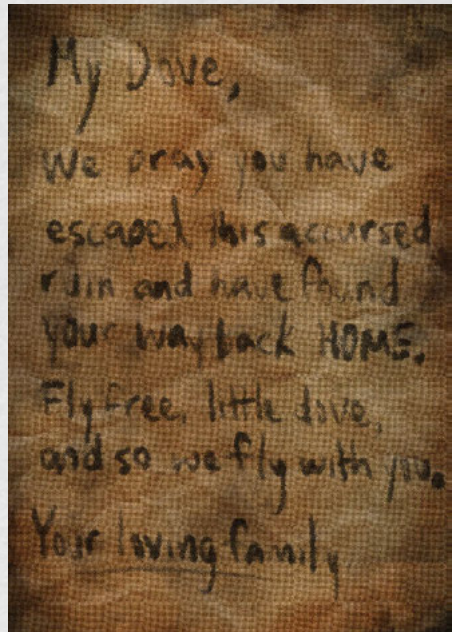 My Dove,
We pray you have
escaped this accursed
ruin and have found
your way back HOME.
Fly free, little dove,
and so we fly with you.
Your loving family